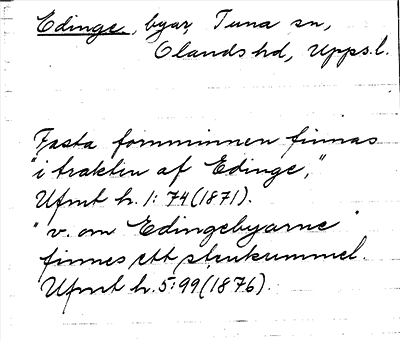 Edinge, byar, Tuna sn,
Olands hd, Upps.l.
Fasta fornminnen finnas
"i trakten af Edinge,"
Ufmt h. 1: 74 (1871).
"v. om Edingebyarne"
finnes ett stenkummel.
Ufmt h. 5: 99 (1876).